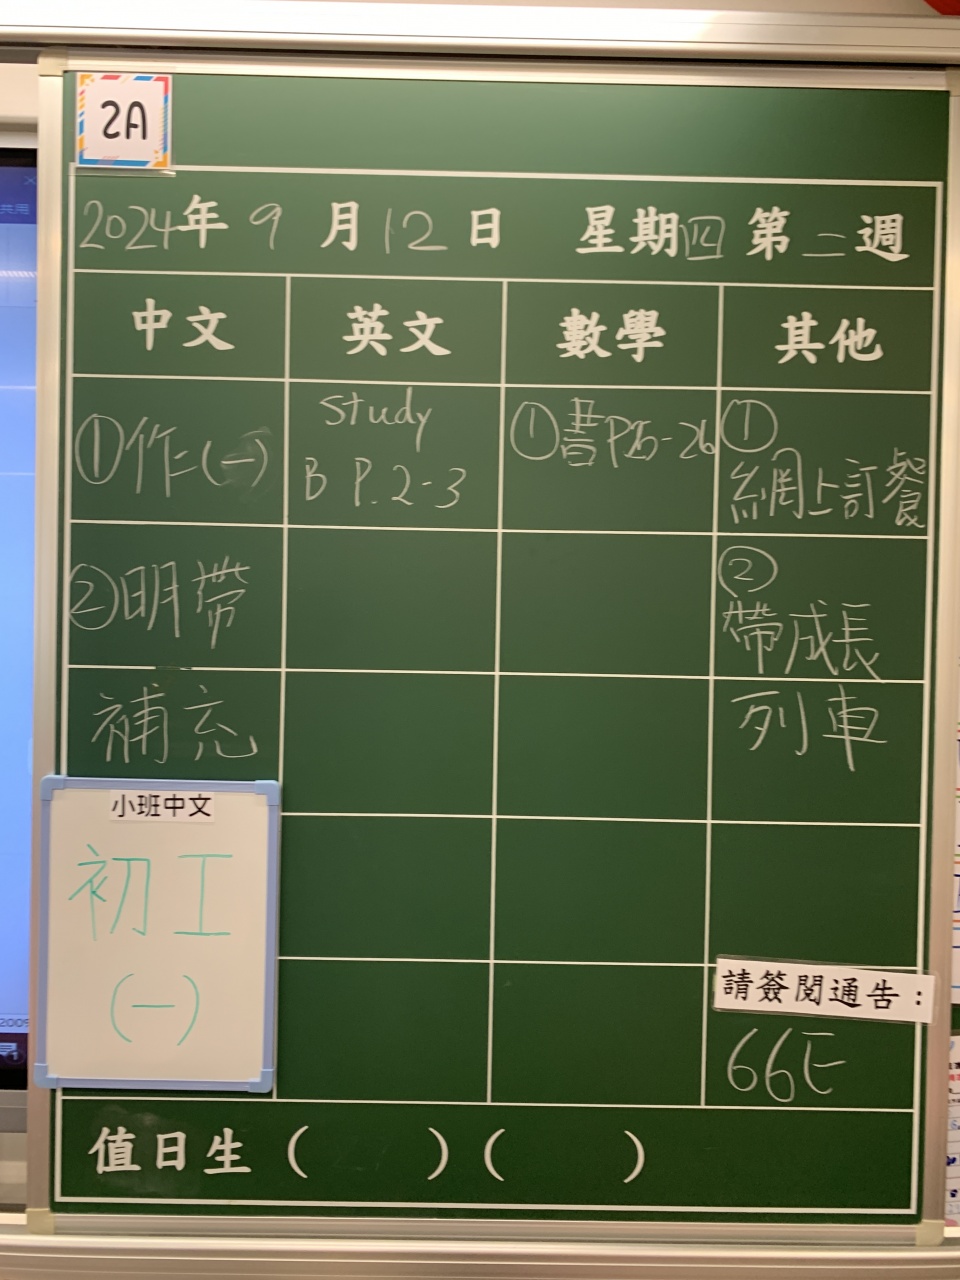 2A
2024年9月12日 星期四 第二週
中文 英文 數學 其他
①作(一)
②明帶
補充
小班中文
初工
(一)
Study
B P.2-3
①書P25-26
①
網上訂餐
②
帶成長
列車
請簽閱通告：
66E
值日生（ ）（ ）